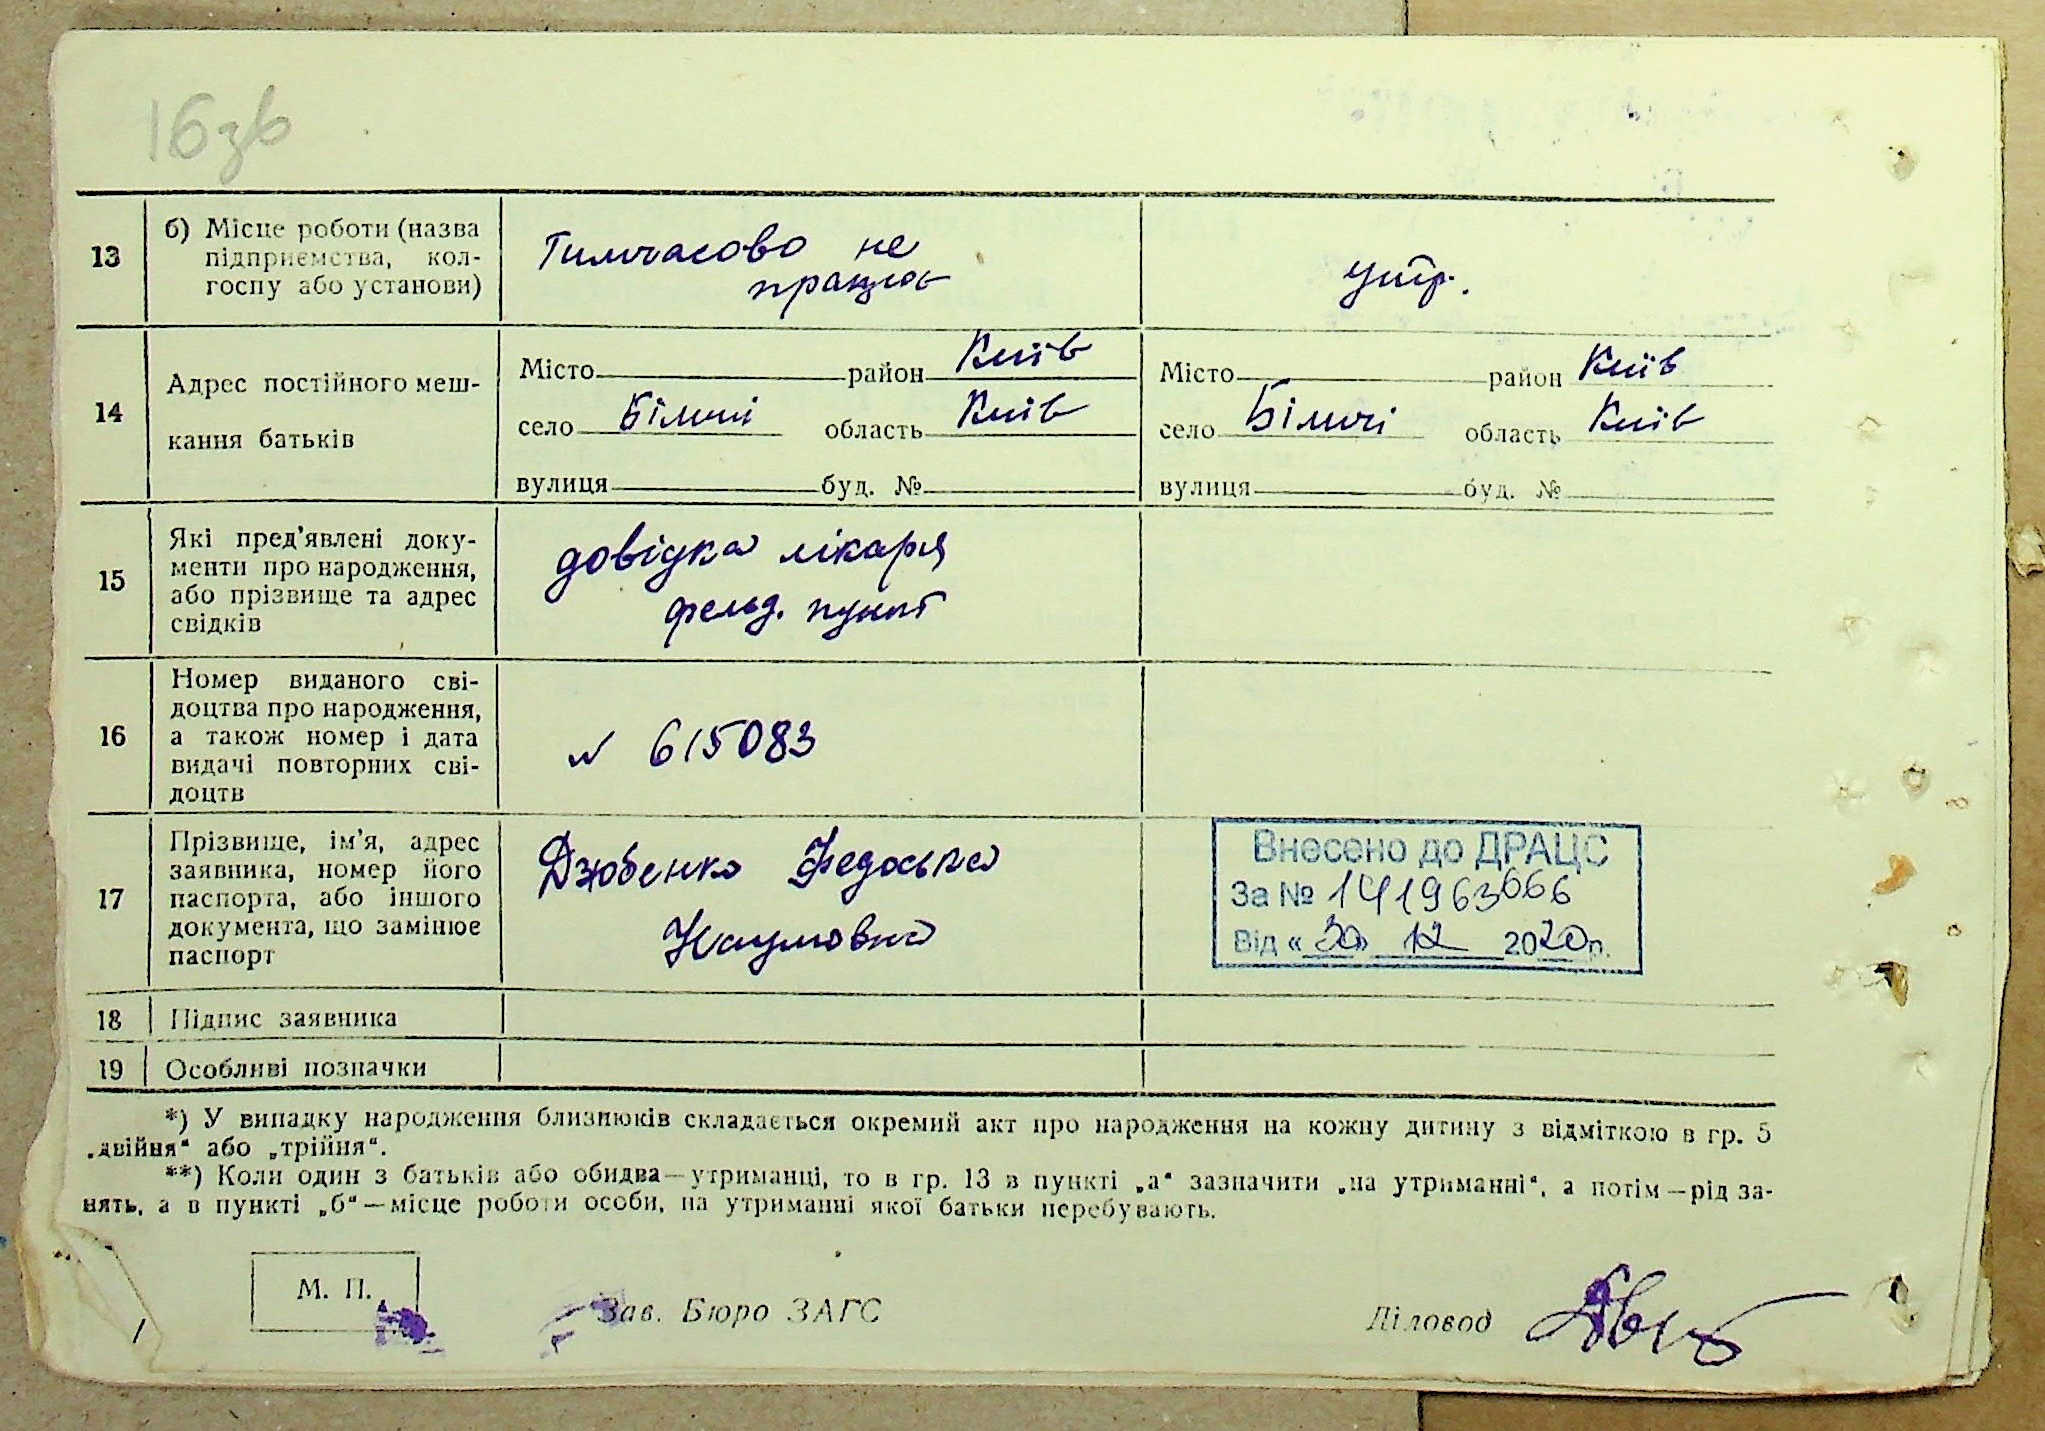 16зв
13
б) Місце роботи (назва
підприємства, кол-
госпу або установи)
Тимчасово не
працює
утр.
14
Адрес постійного меш-
кання батьків
Місто район Київ
село Біличі область Київ
вулиця буд. №
Місто район Київ
село Біличі область Київ
вулиця буд. №
15
Які пред'явлені доку-
менти про народження,
або прізвище та адрес
свідків
довідка лікаря
фельд. пункт
16
Номер виданого сві-
доцтва про народження,
а також номер і дата
видачі повторних сві-
доцтв
N 615083
17
Прізвище, ім'я, адрес
заявника, номер його
паспорта, або іншого
документа, що замінює
паспорт
Дзюбенко Федоська
Наумовна
Внесено до ДРАЦС
За № 141963666
Від «30» 12 2020р.
18
Підпис заявника
19
Особливі позначки
*) У випадку народження близнюків складається окремий акт про народження на кожну дитину з відміткою в гр. 5
„двійня“ або „трійня“.
**) Коли один з батьків або обидва—утриманці, то в гр. 13 в пункті „а“ зазначити „на утриманні“, а потім—рід за-
нять, а в пункті „б“—місце роботи особи, на утриманні якої батьки перебувають.
М. П.
Зав. Бюро ЗАГС
Діловод